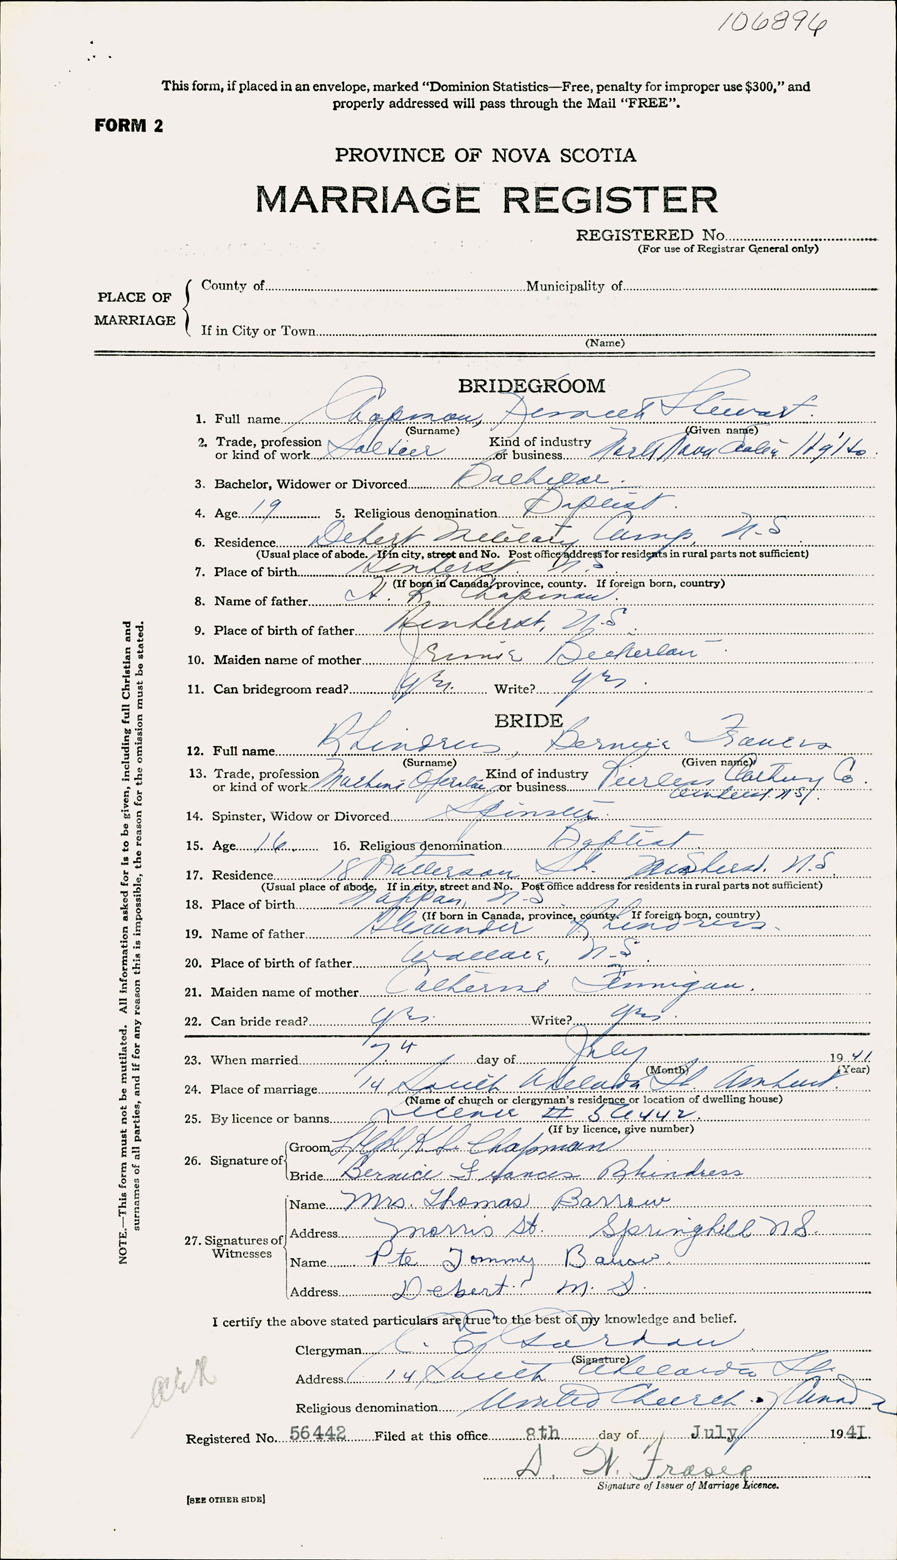 106896
This form, if placed in an envelope, marked "Dominion Statistics—Free, penalty for improper use $300," and
properly addressed will pass through the Mail "FREE".
FORM 2
PROVINCE OF NOVA SCOTIA
MARRIAGE REGISTER
REGISTERED No.
(For use of Registrar General only)
PLACE OF MARRIAGE
County of Municipality of
If in City or Town
(Name)
BRIDEGROOM
1. Full name Chapman, Kenneth Stewart.
(Surname) (Given name)
2. Trade, profession or kind of work Soldier Kind of industry or business North Nova Scotia
3. Bachelor, Widower or Divorced Bachelor.
4. Age 19 5. Religious denomination Baptist.
6. Residence Debert Military Camp, N.S
(Usual place of abode. If in city, street and No. Post office address for residents in rural parts not sufficient)
7. Place of birth Amherst, N.S
(If born in Canada, province, county. If foreign born, country)
8. Name of father H. K. Chapman.
9. Place of birth of father Amherst, N.S.
10. Maiden name of mother Jennie
11. Can bridegroom read? yes. Write? yes.
BRIDE
12. Full name Rhindress, Bernice Frances
(Surname) (Given name)
13. Trade, profession or kind of work Machine Operator Kind of industry or business Peerless Clothing Co.
Amherst. N.S.
14. Spinster, Widow or Divorced Spinster
15. Age 16. 16. Religious denomination Baptist.
17. Residence 18 Patterson St. Amherst. N.S.
(Usual place of abode. If in city, street and No. Post office address for residents in rural parts not sufficient)
18. Place of birth Nappan, N.S.
(If born in Canada, province, county. If foreign born, country)
19. Name of father Alexander Rhindress.
20. Place of birth of father Wallace, N.S.
21. Maiden name of mother Catherine Finnigan.
22. Can bride read? yes. Write? yes.
23. When married 7th day of July 1941
(Month) (Year)
24. Place of marriage 14 South Adelaide St Amherst
(Name of church or clergyman's residence or location of dwelling house)
25. By licence or banns Licence # 56442.
(If by licence, give number)
26. Signature of
Groom K. S. Chapman
Bride Bernice Frances Rhindress
27. Signatures of Witnesses
Name Mrs. Thomas Barrow
Address Morris St. Springhill N.S.
Name Pte Tommy Barrow
Address Debert N. S.
I certify the above stated particulars are true to the best of my knowledge and belief.
Clergyman C. E. Gordon
(Signature)
Address 14 South Adelaide St.
Religious denomination United Church of Canada
Registered No. 56442 Filed at this office 8th day of July 1941
Signature of Issuer of Marriage Licence.
[SEE OTHER SIDE]
NOTE.—This form must not be mutilated. All information asked for is to be given, including full Christian and
surnames of all parties, and if for any reason this is impossible, the reason for the omission must be stated.